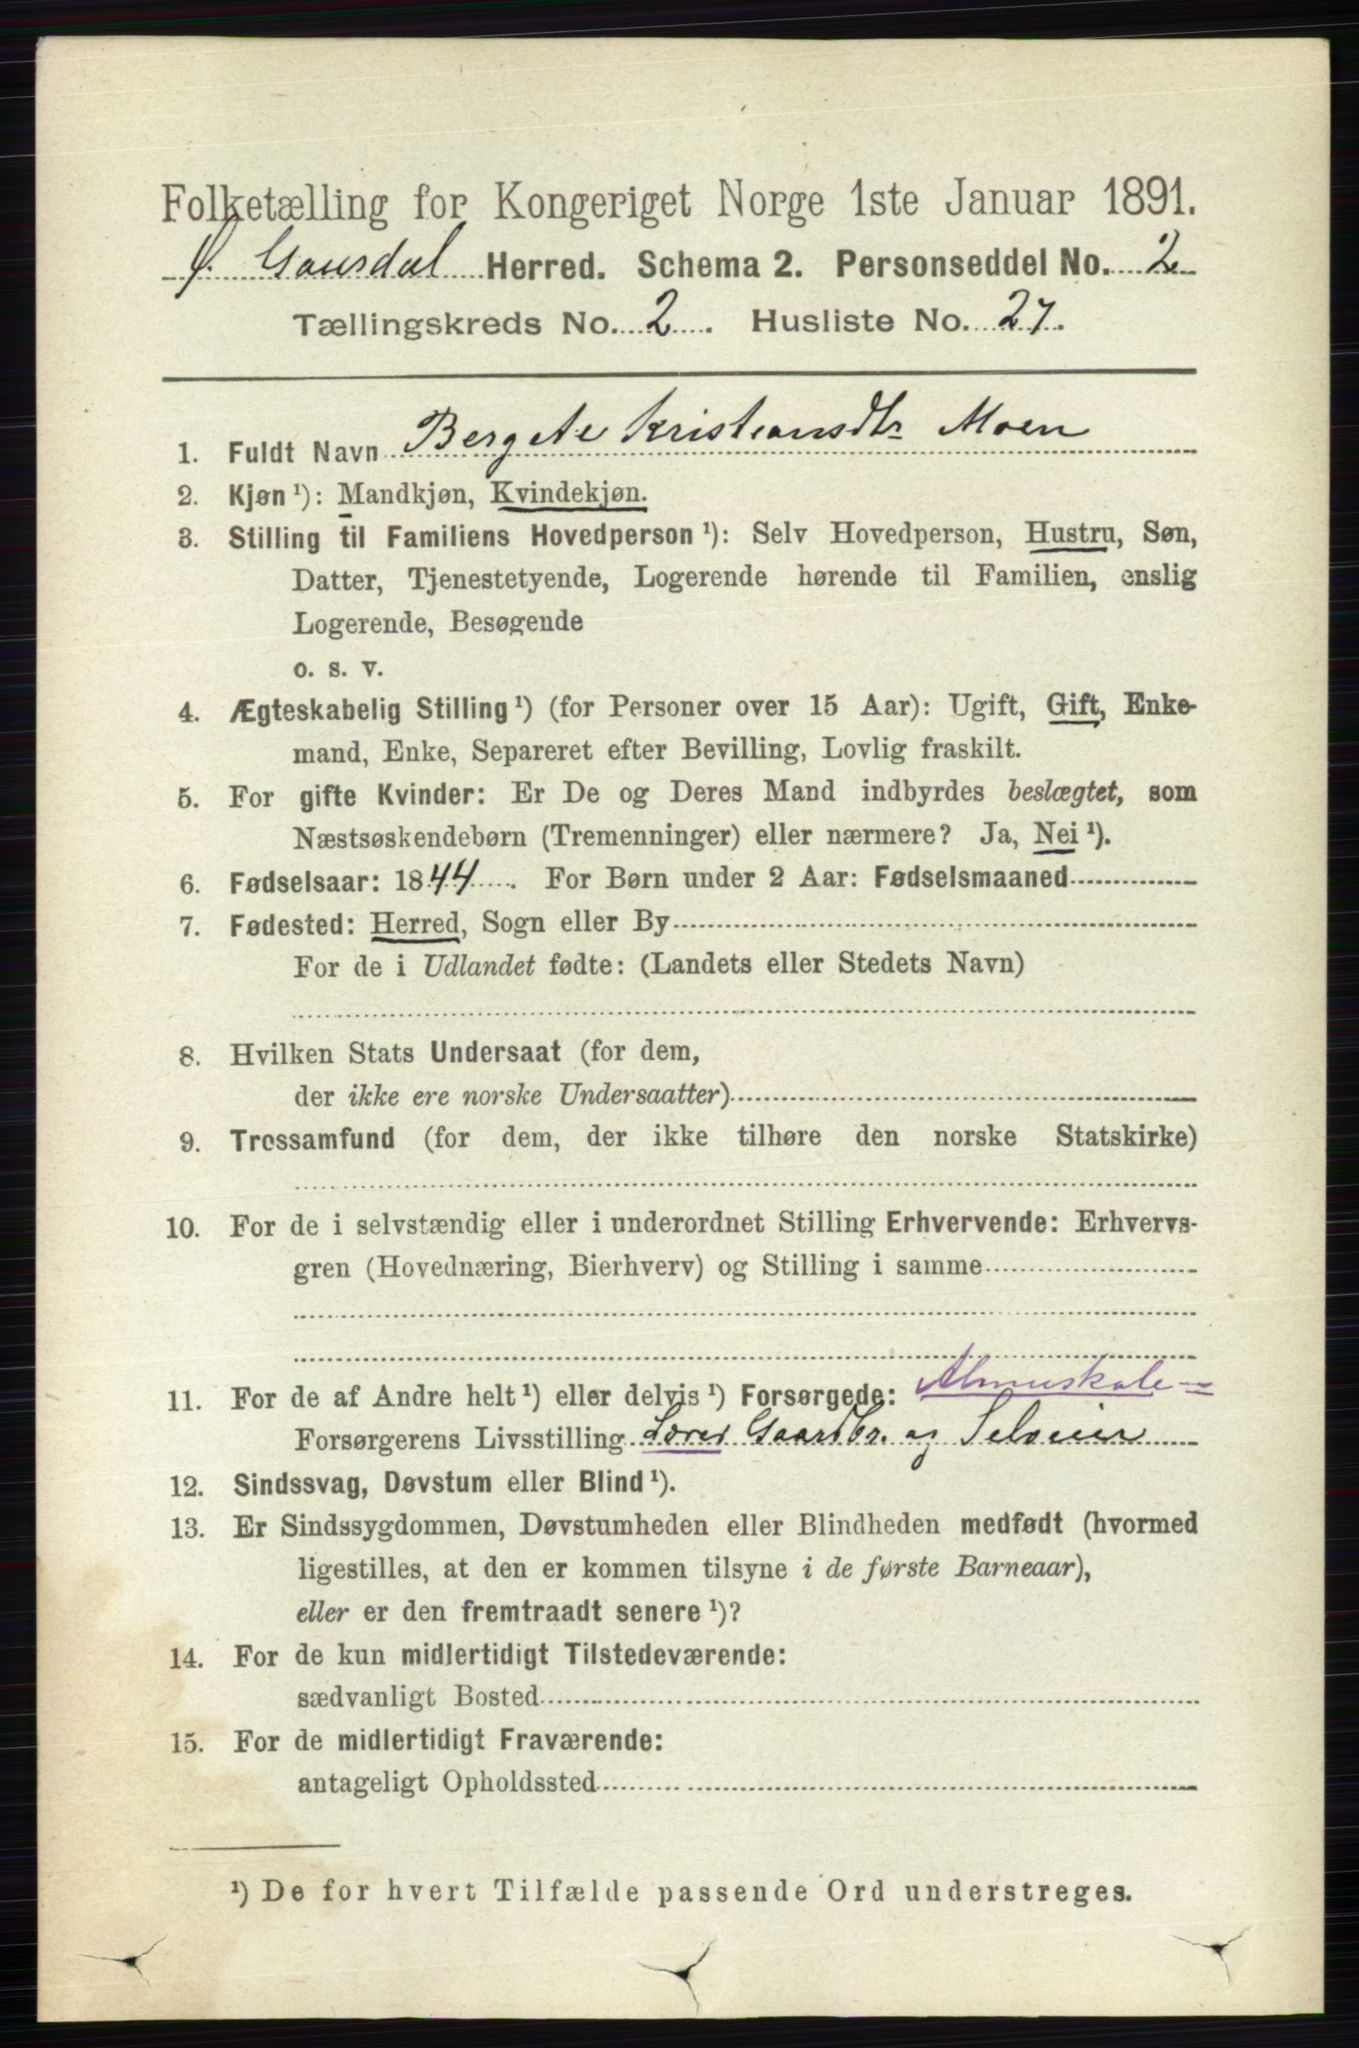 Folketælling for Kongeriget Norge 1ste Januar 1891.
Ø. Gausdal Herred. Schema 2. Personseddel No. 2
Tællingskreds No. 2. Husliste No. 27.
1. Fuldt Navn Bergete Kristiansdtr Moen
2. Kjøn ¹): Mandkjøn, Kvindekjøn.
3. Stilling til Familiens Hovedperson ¹): Selv Hovedperson, Hustru, Søn,
Datter, Tjenestetyende, Logerende hørende til Familien, enslig
Logerende, Besøgende
o. s. v.
4. Ægteskabelig Stilling ¹) (for Personer over 15 Aar): Ugift, Gift, Enke-
mand, Enke, Separeret efter Bevilling, Lovlig fraskilt.
5. For gifte Kvinder: Er De og Deres Mand indbyrdes beslægtet, som
Næstsøskendebørn (Tremenninger) eller nærmere? Ja, Nei ¹).
6. Fødselsaar: 1844. For Børn under 2 Aar: Fødselsmaaned
7. Fødested: Herred, Sogn eller By
For de i Udlandet fødte: (Landets eller Stedets Navn)
8. Hvilken Stats Undersaat (for dem,
der ikke ere norske Undersaatter)
9. Trossamfund (for dem, der ikke tilhøre den norske Statskirke)
10. For de i selvstændig eller i underordnet Stilling Erhvervende: Erhvervs-
gren (Hovednæring, Bierhverv) og Stilling i samme
11. For de af Andre helt ¹) eller delvis ¹) Forsørgede: Almuskole-
Forsørgerens Livsstilling Lærer Gaardbr. og Selveier
12. Sindssvag, Døvstum eller Blind ¹).
13. Er Sindssygdommen, Døvstumheden eller Blindheden medfødt (hvormed
ligestilles, at den er kommen tilsyne i de første Barneaar),
eller er den fremtraadt senere ¹)?
14. For de kun midlertidigt Tilstedeværende:
sædvanligt Bosted
15. For de midlertidigt Fraværende:
antageligt Opholdssted
¹) De for hvert Tilfælde passende Ord understreges.